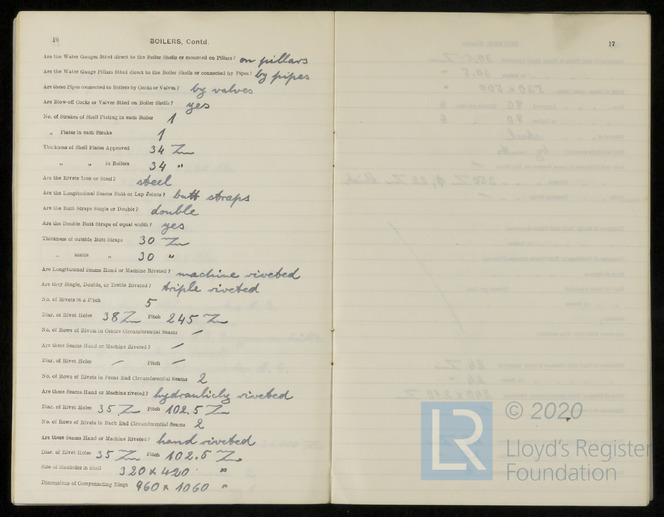 16
BOILERS, Contd.
Are the Water Gauges fitted direct to the Boiler Shells or mounted on Pillars? on pillars
Are the Water Gauge Pillars fitted direct to the Boiler Shells or connected by Pipes? by pipes
Are these Pipes connected to Boilers by Cocks or Valves? by valves
Are Blow-off Cocks or Valves fitted on Boiler Shells? yes
No. of Strakes of Shell Plating in each Boiler 1
„ Plates in each Strake 1
Thickness of Shell Plates Approved 34 Zm
„ „ in Boilers 34 "
Are the Rivets Iron or Steel? steel
Are the Longitudinal Seams Butt or Lap Joints? butt straps
Are the Butt Straps Single or Double? double
Are the Double Butt Straps of equal width? yes
Thickness of outside Butt Straps 30 Zm
„ inside „ 30 "
Are Longitudinal Seams Hand or Machine Riveted? machine riveted
Are they Single, Double, or Treble Riveted? triple riveted
No. of Rivets in a Pitch 5
Diar. of Rivet Holes 38 Zm Pitch 245 Zm
No. of Rows of Rivets in Centre Circumferential Seams —
Are these Seams Hand or Machine Riveted? —
Diar. of Rivet Holes — Pitch —
No. of Rows of Rivets in Front End Circumferential Seams 2
Are these Seams Hand or Machine riveted? hydraulicly riveted
Diar. of Rivet Holes 35 Zm Pitch 102.5 Zm
No. of Rows of Rivets in Back End Circumferential Seams 2
Are these Seams Hand or Machine Riveted? hand riveted
Diar. of Rivet Holes 35 Zm Pitch 102.5 Zm
Size of Manholes in Shell 320 x 420 "
Dimensions of Compensating Rings 960 x 1060 "
17
© 2020
LR
Lloyd's Register
Foundation